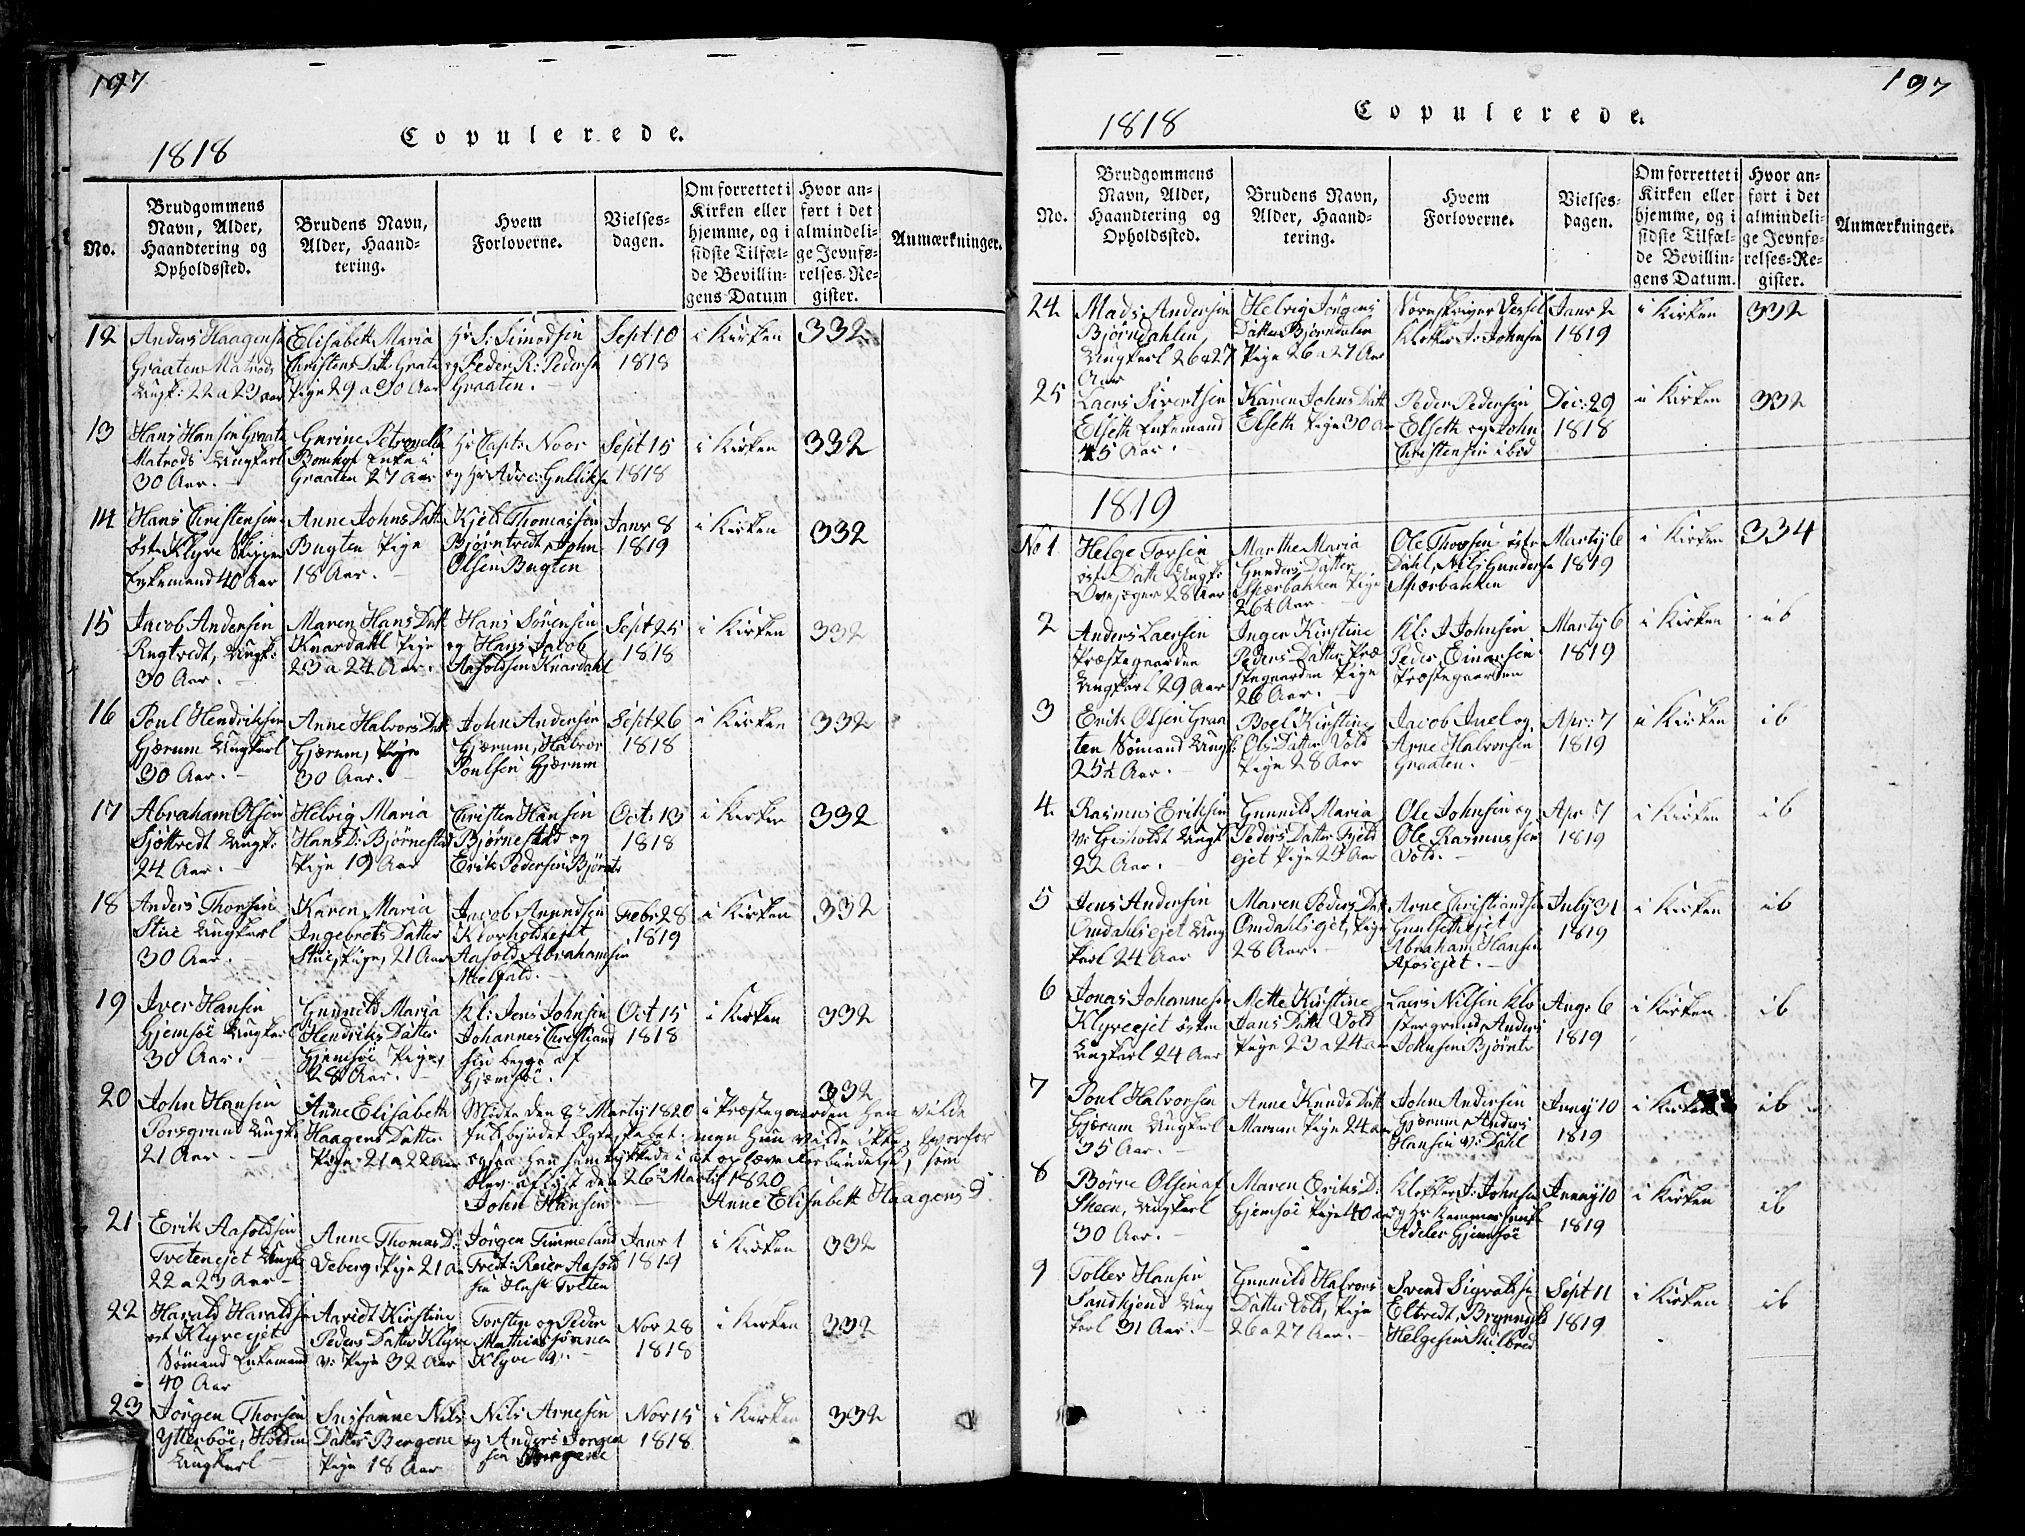 197
Copulerede.
1818
No.
Brudgommens
Navn, Alder,
Haandtering og
Opholdssted.
Brudens Navn,
Alder, Haand-
tering.
Hvem
Forloverne.
Vielses-
dagen.
Om forrettet i
Kirken eller
hjemme, og i
sidste Tilfæl-
de Bevillin-
gens Datum
Hvor an-
ført i det
almindeli-
ge Jevnfø-
relses-Re-
gister.
Anmærkninger.
12
Anders Haagens
Graaten Matrods
Ungk: 22 a 23 aar
Elisabeth Maria
Christens Datt Graate
Pige 29 a 30 Aar
Hr S: Simodsen
og Peder R: Peders
Graaten.
Sept 10
1818
i Kirken
332
13
Hans Hansen Graate
Matrods Ungkarl
30 Aar.
Gurine Petronelle
Bomhof Enke i
Graaten 27 Aar
Hr Capt: Noor
og Hr Adv: Gulliks
Sept 15
1818
i Kirken
332
14
Hans Christensen
Østr Klyve Skipper
Enkemand 40 Aar
Anne Johns Datt
Bugten Pige
18 Aar.
Kjeld Thomassen
Bjørntvedt, John
Olsen Bugten
Janr 8
1819
i Kirken
332
15
Jacob Andersen
Rugtvedt, Ungk:
30 Aar.
Maren Hans Datt
Knardahl Pige
23 a 24 Aar.
Hans Sørensen
og Hans Jacob
Aasoldsen Knardahl
Sept 25
1818
i Kirken
332
16
Poul Hendriksen
Gjærum Ungkarl
30 Aar.
Anne Halvors Datt
Gjærum, Pige
30 Aar.
John Andersen
Gjærum, Halvor
Poulsen Gjærum
Sept 26
1818
i Kirken
332
17
Abraham Olsen
Sjøttvedt Ungk:
24 Aar.
Helvig Maria
Hans D: Bjørnestad
Pige 19 Aar
Christen Hansen
Bjørnestad og
Erik Pedersen Bjørntv
Oct: 13
1818
i Kirken
332
18
Anders Thorsen
Stue Ungkarl
30 Aar.
Karen Maria
Ingebrets Datter
Stue, Pige, 21 Aar
Jacob Anundsen
Klovholt ejet
Aasold Abrahamsen
Melfald.
Febr 28
1819
i Kirken
332
19
Iver Hansen
Gjemsøe Ungkarl
30 Aar.
Gunnild Maria
Hendriks Datter
Gjemsøe Pige,
28 Aar.
Kl: Jens Johnsen
Johannes Christiand
sen begge af
Gjemsøe.
Oct 15
1818
i Kirken
332
20
John Hansen
Porsgrund Ungk:
21 Aar.
Anne Elisabeth
Haagens Datter
Pige 21 a 22 Aar
332
Mødte den 8de Martij 1820 i Præstegaarden Han vilde
fuldbyrdet Ægteskabet: men Hun vilde ikke, hvorfor
ogsaa Han samtykkede i at ophæve Forbindelse, som
blev aflyst den 26de Martij 1820
John Hansen
Anne Elisabeth Haagens D
21
Erik Aasoldsen
Tvetenejet Ungk
22 a 23 Aar
Anne Thomas D:
Veberg, Pige 21 Aar
Jørgen Timmeland
Tvedt: Reier Aasold
sen Tveten
Janr 1
1819
i Kirken
332
22
Harald Haraldse
øst Klyve ejet
Sømand Enkemand
40 Aar
Aavidt Kirstine
Peders Datter Klyve
V: Pige 32 Aar
Torsten og Peder
Mathiassønner
Klyve V:
Nov 28
1818
i Kirken
332
23
Jørgen Thorsen
Ytterbøe, Holden
Ungkarl
Susanne Nils
Datter Bergene
Pige 18 Aar
Nils Arnesen
og Anders Jørgen
sen Bergene
Nov 15
1818
i Kirken
332
197
Copulerede.
1818
No.
Brudgommens
Navn, Alder,
Haandtering og
Opholdssted.
Brudens Navn,
Alder, Haand-
tering.
Hvem
Forloverne.
Vielses-
dagen.
Om forrettet i
Kirken eller
hjemme, og i
sidste Tilfæl-
de Bevillin-
gens Datum.
Hvor an-
ført i det
almindeli-
ge Jevnfø-
relses-Re-
gister.
Anmærkninger.
24
Mads Andersen
Bjørndahlen,
Ungkarl 26 a 27
Aar
Helvig Jørgens
Datter Bjørndalen
Pige 26 a 27 Aar
Sorenskriver Vessel
Klokker J: Johnsen
Janr 2
1819
i Kirken
332
25
Laers Sivertsen
Elseth Enkemand
45 Aar.
Karen Johns Datt
Elseth Pige 30 Aar
Peder Pedersen
Elseth og John
Christensen ibid
Dec: 29
1818
i Kirken
332
1819
No 1
Helge Torsen
østr Dahl Ungk:
28 Aar
Marthe Maria
Gunders Datter
Skærbakken Pige
26½ Aar
Ole Thorsen østr
Dahl, Nils Gunders
Skærbakken
Martij 6
1819
i Kirken
334
2
Anders Laersen
Præstegaarden
Ungkarl 29 Aar
Inger Kirstine
Peders Datter Præ
stegaarden Pige
26 Aar.
Kl: J Johnsen
Peder Einarsen
Præstegaarden
Martij 6
1819
i Kirken
ib
3
Erik Olsen Graa
ten Sømand Ungk:
25½ Aar.
Boel Kirstine
Ols Datter Vold
Pige 28 Aar
Jacob Juel og
Arne Halvorsen
Graaten.
Apr: 7
1819
i Kirken
ib
4
Rasmus Eriksen
V: Gisholdt Ungk
22 Aar.
Gunnild Maria
Peders Datter Fjeld
ejet Pige 27 Aar
Ole Johnsen og
Ole Rasmussen
Vold.
Apr 7
1819
i Kirken
ib
5
Jens Andersen
Omdahlsejet Ung
karl 24 Aar
Maren Peders Datt
Omdahlsejet, Pige
28 Aar.
Arne Christiandse
Gunsethejet
Abraham Hansen
Aasejet.
July 31
1819
i Kirken
ib
6
Jonas Johannesen
Klyve ejet østen
Ungkarl 24 Aar
Mette Kirstine
Jans Datt Vold
Pige 23 a 24 aar
Laers Nilsen Klo
stergrund, Anders
Johnsen Bjørntv
Aug: 6
1819
i Kirken
ib
7
Poul Halvorsen
Gjørum Ungkarl
35 Aar.
Anne Knuds Datt
Marum Pige 24 aar
John Andersen
Gjærum, Anders
Hansen V: Dahl
Juny 10
1819
i Kirken
ib
8
Børre Olsen af
Skeen, Ungkarl
30 Aar.
Maren Eriks D:
Gjemsøe Pige 40 aar
Klokker J: Johnsen
og Hr Kammerjunke
Adeler Gjemsøe
Juny 10
1819
i Kirken
ib
9
Tollev Hansen
Sandkjend Ung
karl 31 Aar.
Gunnild Halvors
Datter Vold, Pige
26 a 27 Aar.
Svend Sigvaldse
Eltvedt, Brynnild
Helgesen Skilbred
Sept 11
1819
i Kirken
ib